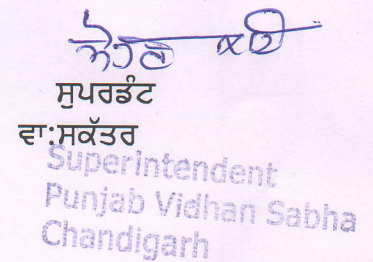 ਸੁਪਰਡੰਟ
ਵਾ:ਸਕੱਤਰ
Superintendent
Punjab Vidhan Sabha
Chandigarh